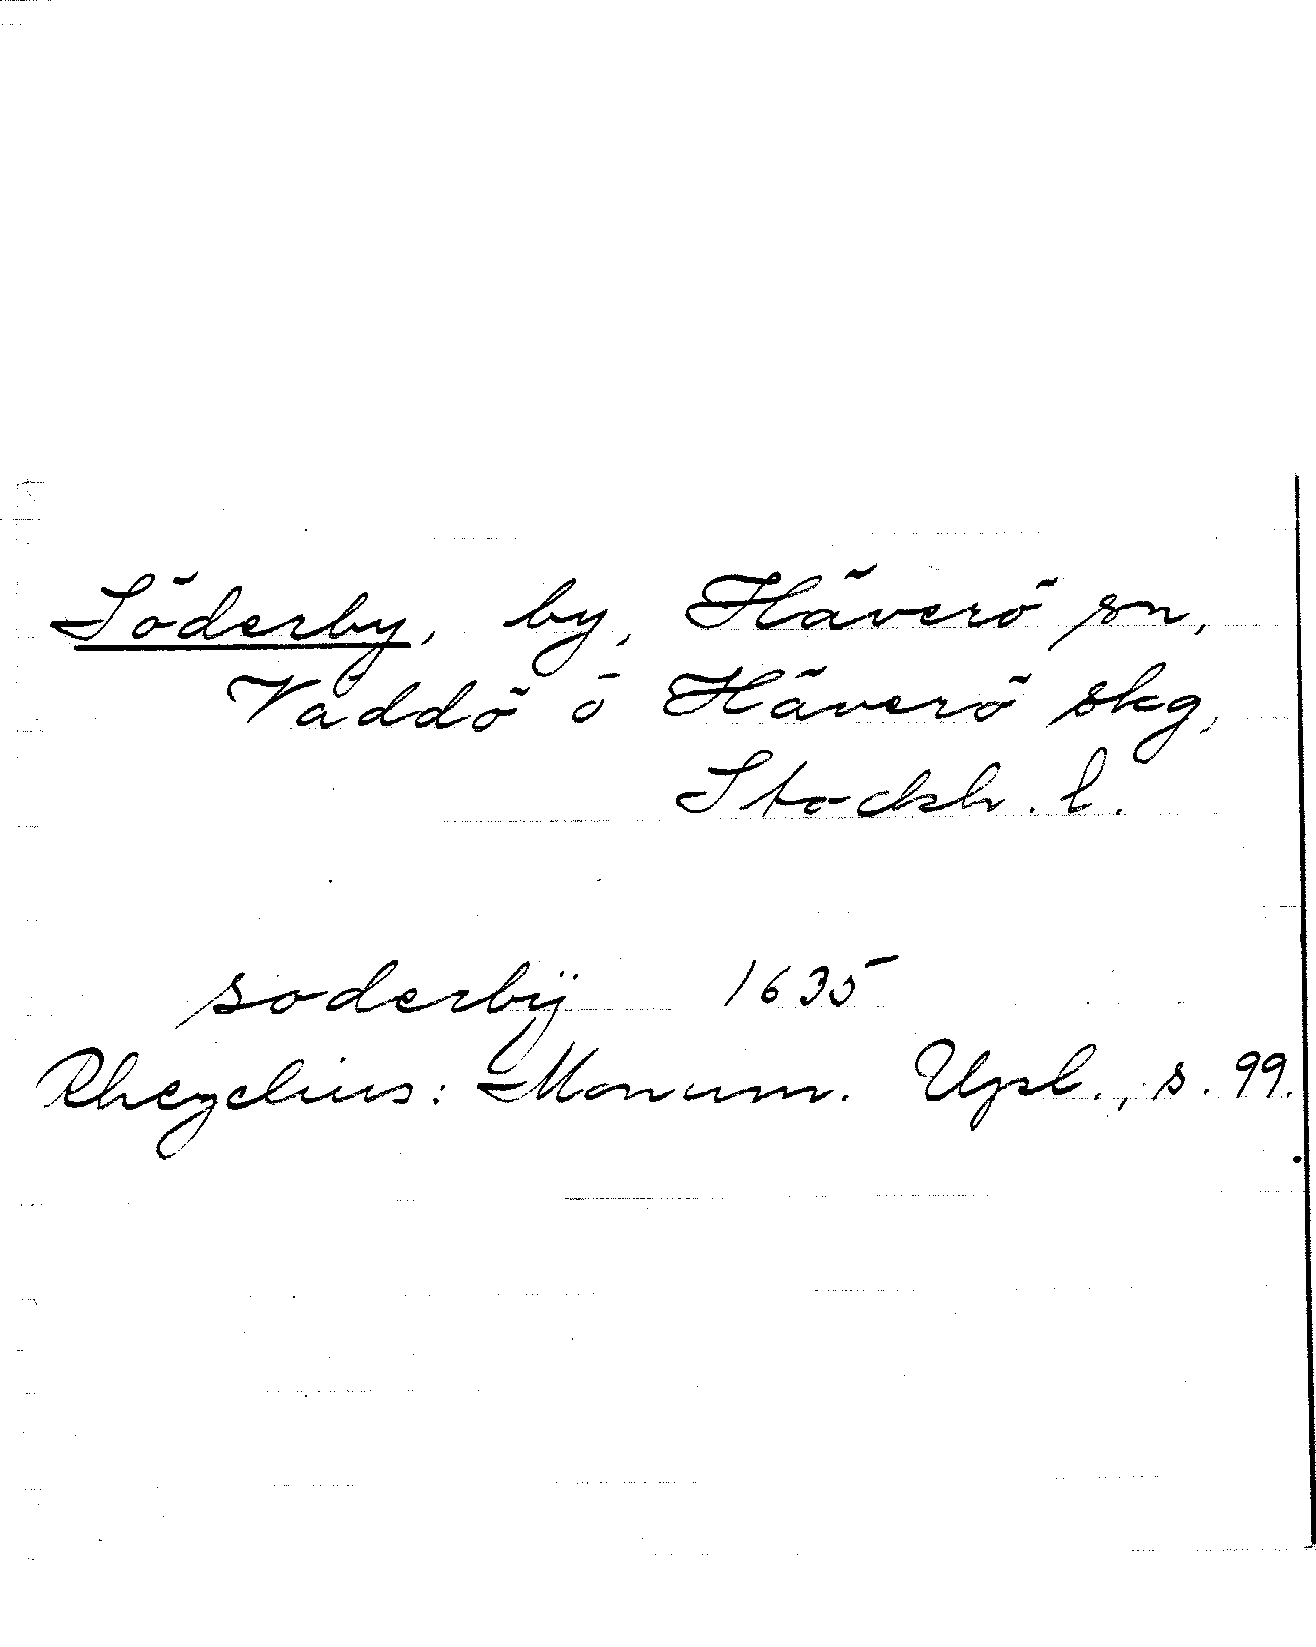 Söderby, by, Häverö sn,
Väddö ö Häverö skg,
Stockh. l.
soderbÿ 1635
Rhezelius: Monum. Upl., s. 99.